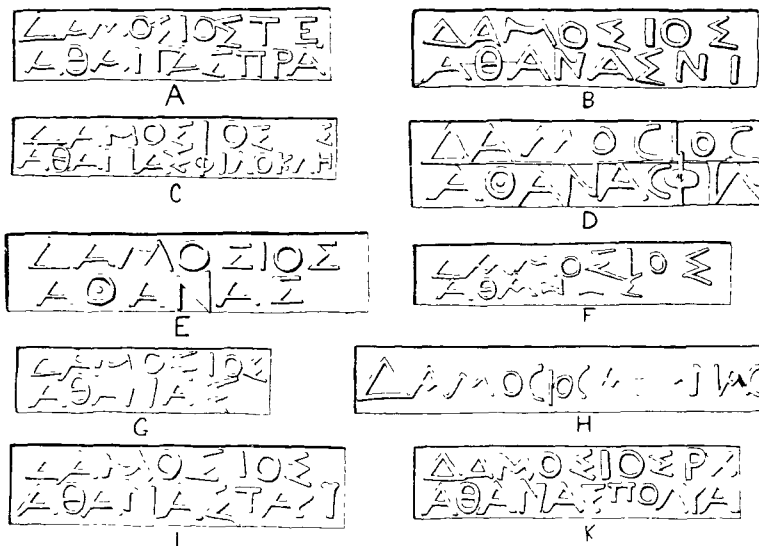 ΔΑΜΟΣΙΟΣΤΕ
ΑΘΑΝΑΣΠΡΑ
A
ΔΑΜΟΣΙΟΣ
ΑΘΑΝΑΣΝΙ
B
ΔΑΜΟΣΙΟΣ Σ
ΑΘΑΝΑΣΦΙΛΟΚΛΗ
C
ΔΑΜΟCΙΟC
ΑΘΑΝΑCΦΙΛ
D
ΔΑΜΟΣΙΟΣ
ΑΘΑΝΑΣ
E
ΔΑΜΟΣΙΟΣ
F
ΔΑΜΟΣΙΟΣ
ΑΘΑΝΑΣ
G
ΔΑΜΟCΙΟC
H
ΔΑΜΟΣΙΟΣ
I
ΔΑΜΟΣΙΟΣ
ΑΘΑΝΑΣΠΟΛΙΑ
K